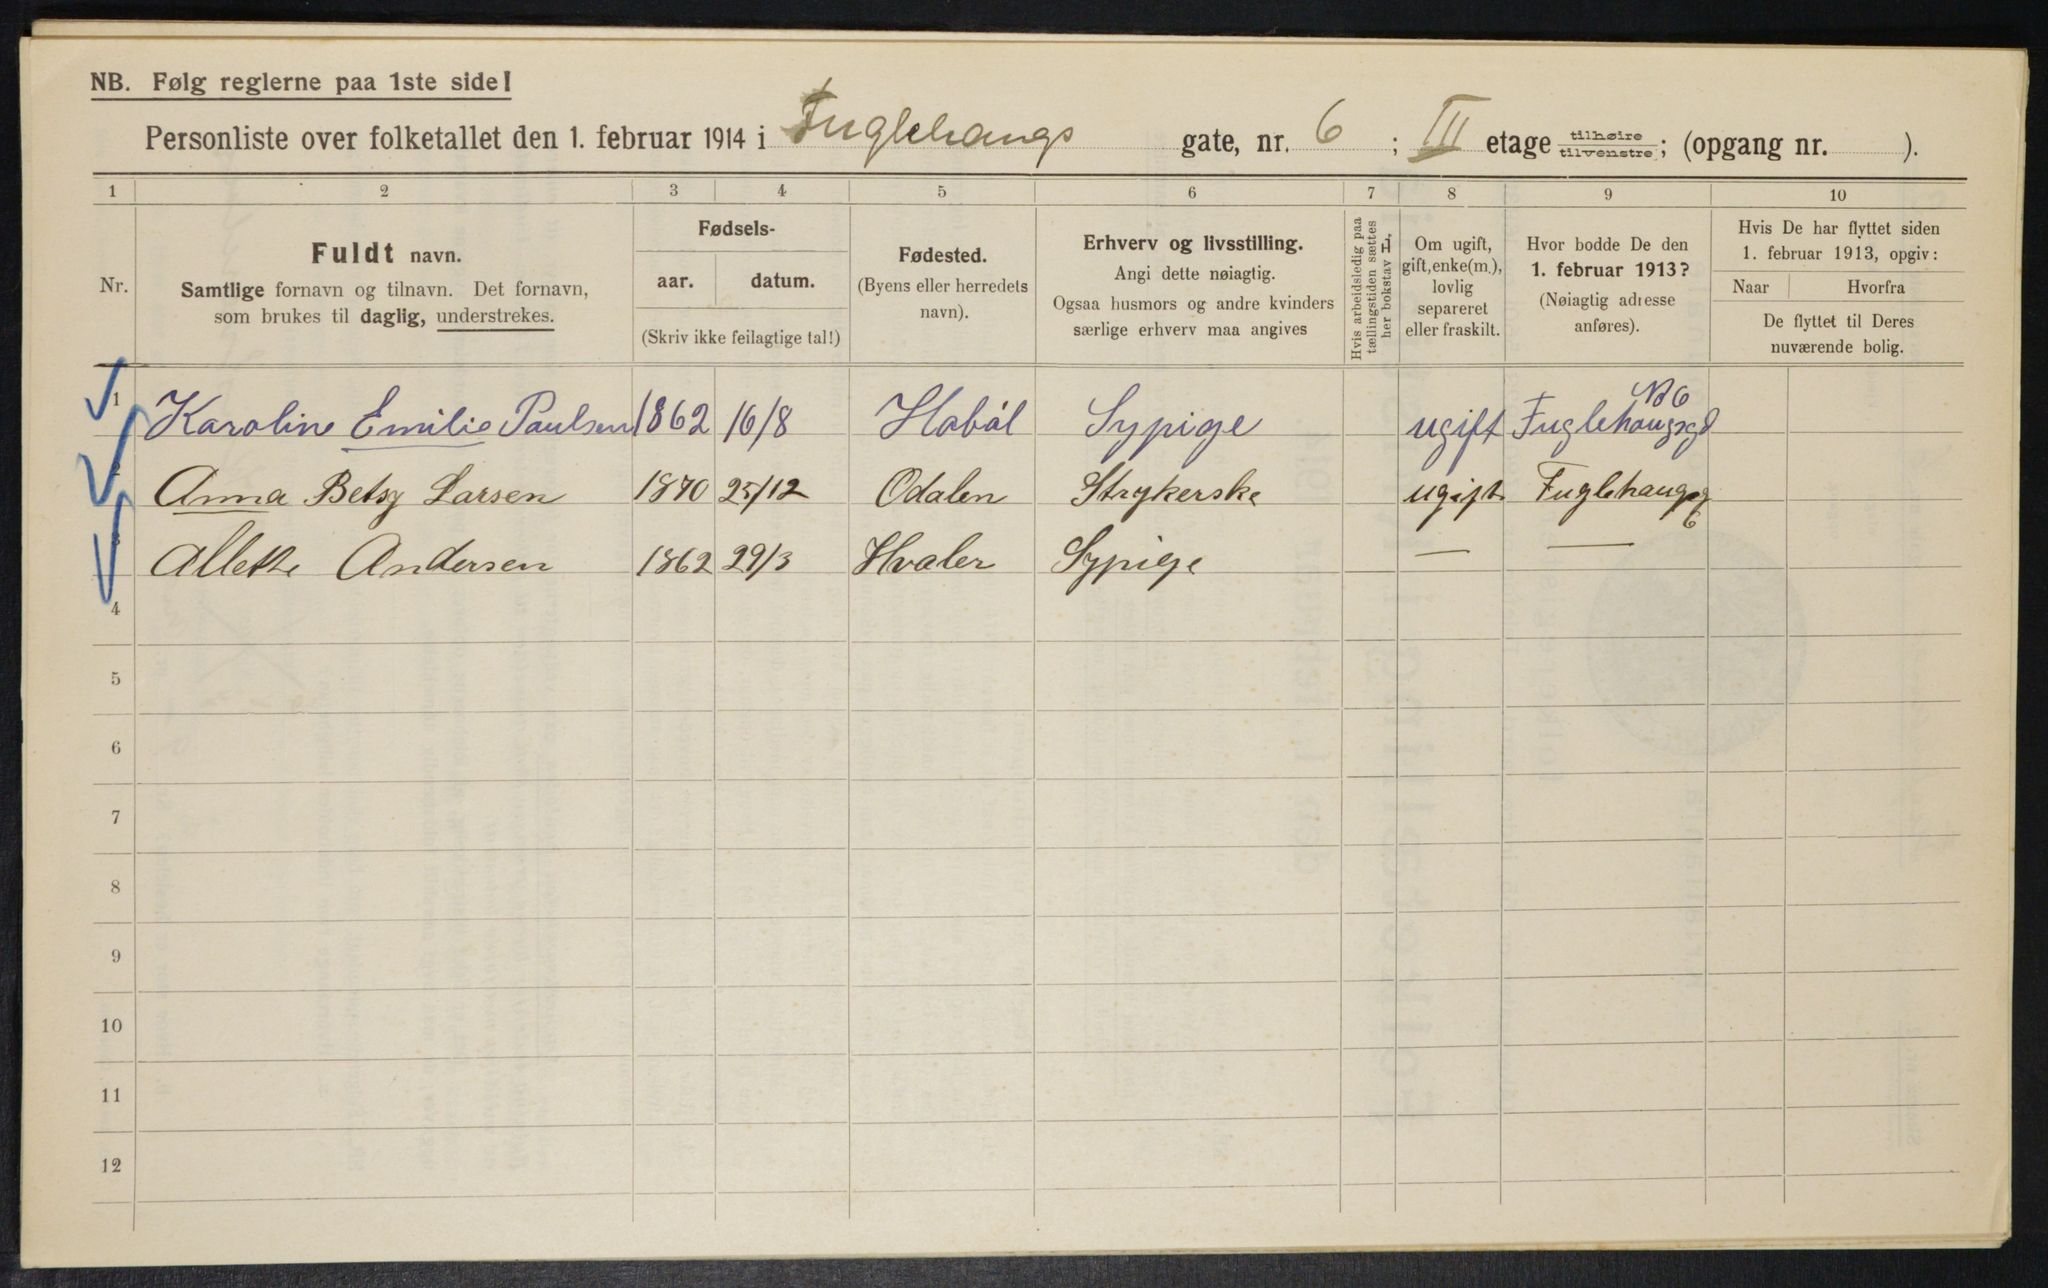 NB. Følg reglerne paa 1ste side!
Personliste over folketallet den 1. februar 1914 i Fuglehaugs gate, nr. 6 ; III etage tilhøire tilvenstre; (opgang nr. ).
1 2 3 4 5 6 7 8 9 10
Nr.
Fuldt navn.
Samtlige fornavn og tilnavn. Det fornavn,
som brukes til daglig, understrekes.
Fødsels-
aar. datum.
(Skriv ikke feilagtige tal!)
Fødested.
(Byens eller herredets
navn).
Erhverv og livsstilling.
Angi dette nøiagtig.
Ogsaa husmors og andre kvinders
særlige erhverv maa angives
Hvis arbeidsledig paa
tællingstiden sættes
her bokstav L.
Om ugift,
gift, enke(m.),
lovlig
separeret
eller fraskilt.
Hvor bodde De den
1. februar 1913?
(Nøiagtig adresse
anføres).
Hvis De har flyttet siden
1. februar 1913, opgiv:
Naar Hvorfra
De flyttet til Deres
nuværende bolig.
1 Karoline Emilie Paulsen 1862 16/8 Habøl Sypige ugift Fuglehaugsgd No 6
2 Anna Betsy Larsen 1870 25/12 Odalen Strykerske ugift Fuglehaugsg 6
3 Allette Andersen 1862 29/3 Hvaler Sypige — —
4
5
6
7
8
9
10
11
12